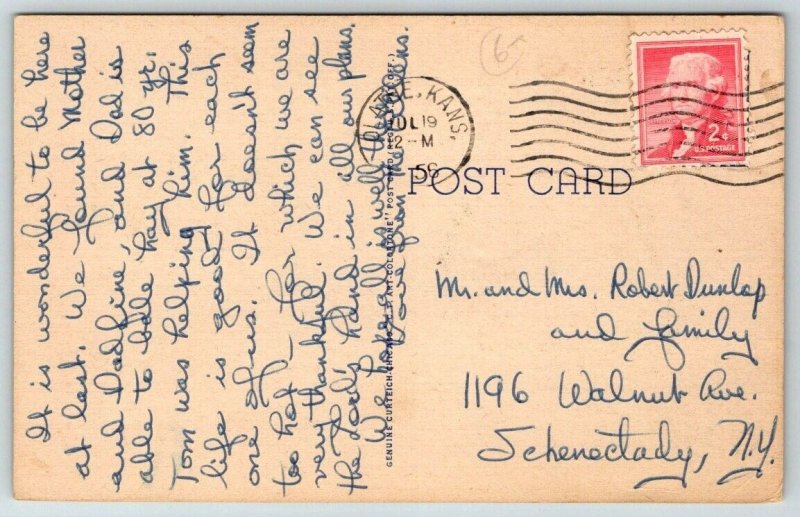 It is wonderful to be here
at last. We found Mother
and Dad fine, and Dad is
able to bale hay at 80 yr.
Tom was helping him. This
life is good for each
one of us. It doesn't seem
too hot – for which we are
very thankful. We can see
the Lord's hand in all our plans.
We hope all is well
Love from
6-
KANS.
JUL 19
12-M
56
2¢
U.S. POSTAGE
POST CARD
GENUINE CURTEICH-CHICAGO
POST CARD
Mr. and Mrs. Robert Dunlap
and family
1196 Walnut Ave.
Schenectady, N.Y.